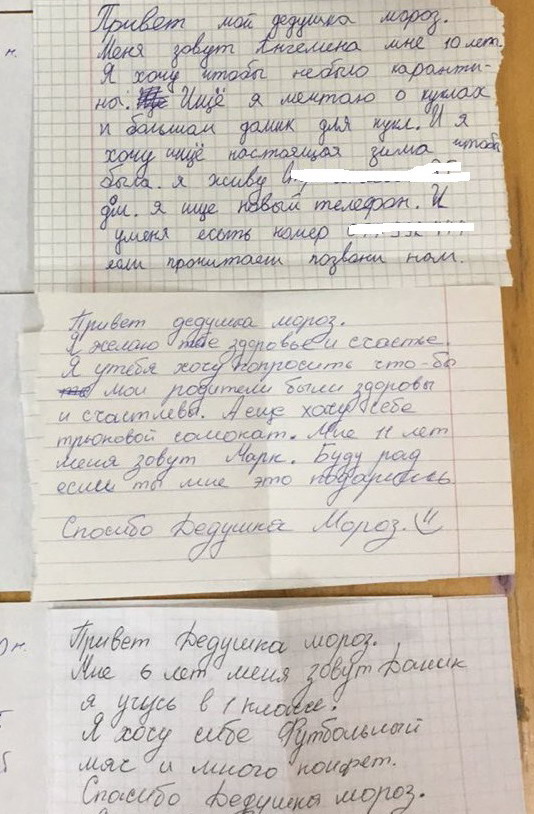 Привет мой дедушка мороз.
Меня зовут Ангелина мне 10 лет.
Я хочу чтобы небыло каранти-
на. Ищё я мечтаю о куклах
и большой домик для кукл. И я
хочу ищё настоящая зима чтобы
была. я живу
дм. я ище новый телефон. И
уменя есть номер
если прочитаеш позвони нам.
Привет дедушка мороз.
Я желаю тебе здоровье и счастье.
Я утебя хочу попросить что-бы
мои родители были здоровы
и счастлевы. А еще хочу себе
трюковой самокат. Мне 11 лет
меня зовут Марк. Буду рад
если ты мне это подариш.
Спосибо Дедушка Мороз.
Привет Дедушка мороз.
Мне 6 лет меня зовут Даник
я учусь в 1 классе.
Я хочу себе Футбольный
мяч и много конфет.
Спосибо Дедушка мороз.